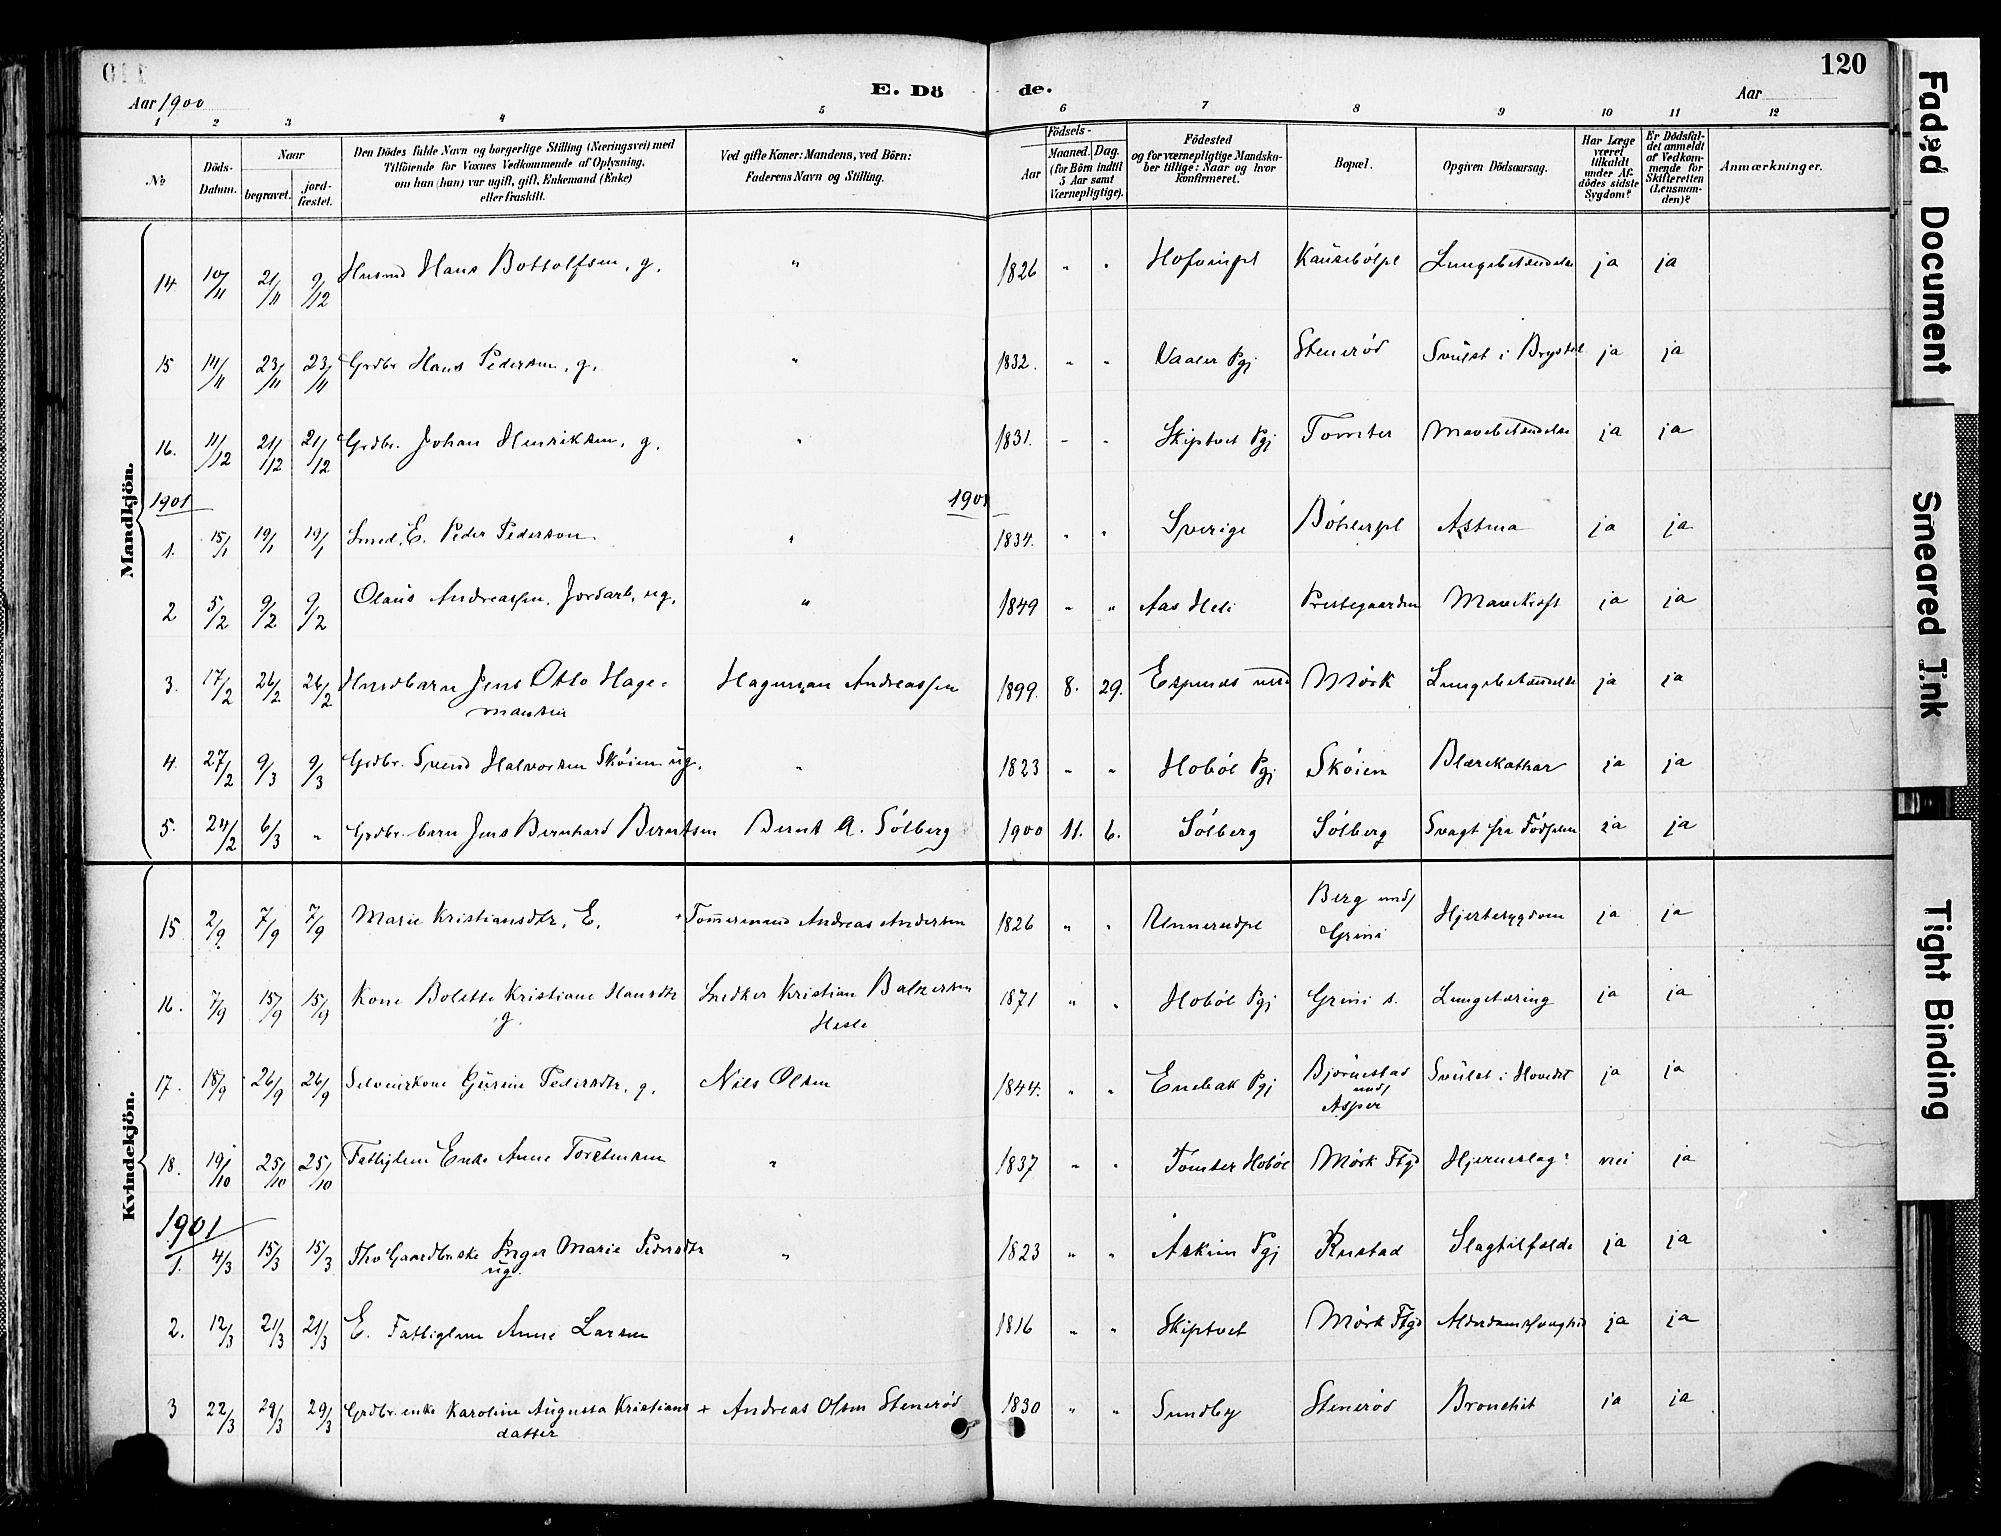 120
Aar 1900
E. Dö de.
Aar
1 2 3 4 5 6 7 8 9 10 11 12
No
Döds-Datum.
Naar
begravet.
jord-fæstet.
Den Dödes fulde Navn og borgerlige Stilling (Næringsvei) med
Tilföiende for Voxnes Vedkommende af Oplysning,
om han (hun) var ugift, gift, Enkemand (Enke)
eller fraskilt.
Ved gifte Koner: Mandens, ved Börn:
Faderens Navn og Stilling.
Födsels-
Aar
Maaned. Dag.
(for Börn indtil
5 Aar samt
Værnepligtige).
Födested
og for værnepligtige Mandska-
ber tillige: Naar og hvor
konfirmeret.
Bopæl.
Opgiven Dödsaarsag.
Har Læge
været
tilkaldt
under Af-
dödes sidste
Sygdom?
Er Dödsfal-
det anmeldt
af Vedkom-
mende for
Skifteretten
(Lensman-
den)?
Anmærkninger.
Mandkjön.
14 10/11 21/11 9/12 Husmd Hans Bottolfsen, g. " 1826 " " Hofvinpl Kausebölpl Lungebetændelse ja ja
15 14/11 23/11 23/11 Grdbr. Hans Pedersen, g. " 1832. " " Vaaler Pgj Stenerød Svülst i Brystet ja ja
16. 11/12 21/12 21/12 Grdbr. Johan Henriksen, g. " 1831. " " Skiptvet Pgj Tomter Mavebetændelse ja ja
1901 1901
1. 15/1 19/1 19/1 Smed, E. Peder Pederson " 1834. " " Sverige Böhlerpl Astma ja ja
2 5/2 9/2 9/2 Olaus Andreassen. Jordarb, ug. " 1849 " " Aas Heli Prestegaarden Mavekræft ja ja
3. 17/2 26/2 26/2 Husdbarn Jens Otto Hage-
mansen Hageman Andreassen 1899. 8. 29. Espenæs Mørk Lungebetændelse ja ja
4. 27/2 9/3 9/3 Grdbr. Svend Halvorsen Skøien ug. " 1823 " " Hobøl Pgj Skøien Blærekathar ja ja
5. 24/2 6/3 " Grdbr. barn Jens Bernhard Berntsen Bernt A. Sölberg 1900 11. 6. Sölberg Sölberg Svagt fra Födselen ja ja
Kvindekjön.
15 2/9 7/9 7/9 Marie Kristiansdtr, E. + Tömmermand Andreas Andersen 1826 " " Unnerudpl Berg und/
Grini Hjertesygdom ja ja
16. 7/9 15/9 15/9 Kone Bolette Kristiane Hansdtr
g. Snedker Kristian Baltersen
Hesle 1871 " " Hobøl Pgj Grini s. Lungetæring ja ja
17. 18/9 26/9 26/9 Selveierkone Gurine Pedersdtr, g. Nils Olsen 1844. " " Enebak Pgj Bjørnestad
und/
Asper Svulst i Hovedet ja ja
18. 19/10 25/10 25/10 Fattiglem Enke Anne Torstensen " 1837 " " Tomter Hobøl Mørk Ftgd Hjerneslag? nei ja
1901
1. 4/3 15/3 15/3 Fhv Gaardbrske Inger Marie Pedersdtr
ug. " 1823 " " Askim Pgj Rustad Slagtilfælde ja ja
2. 12/3 21/3 21/3 E. Fattiglem Anne Larsen 1816 " " Skiptvet Mørk Ftgd Alderdomssvaghed ja ja
3 22/3 29/3 29/3 Grdbr. enke Karoline Augusta Kristians
datter + Andreas Olsen Stenerød 1830 " " Sundby Stenerød Bronchit ja ja
Faded Document
Smeared Ink
Tight Binding